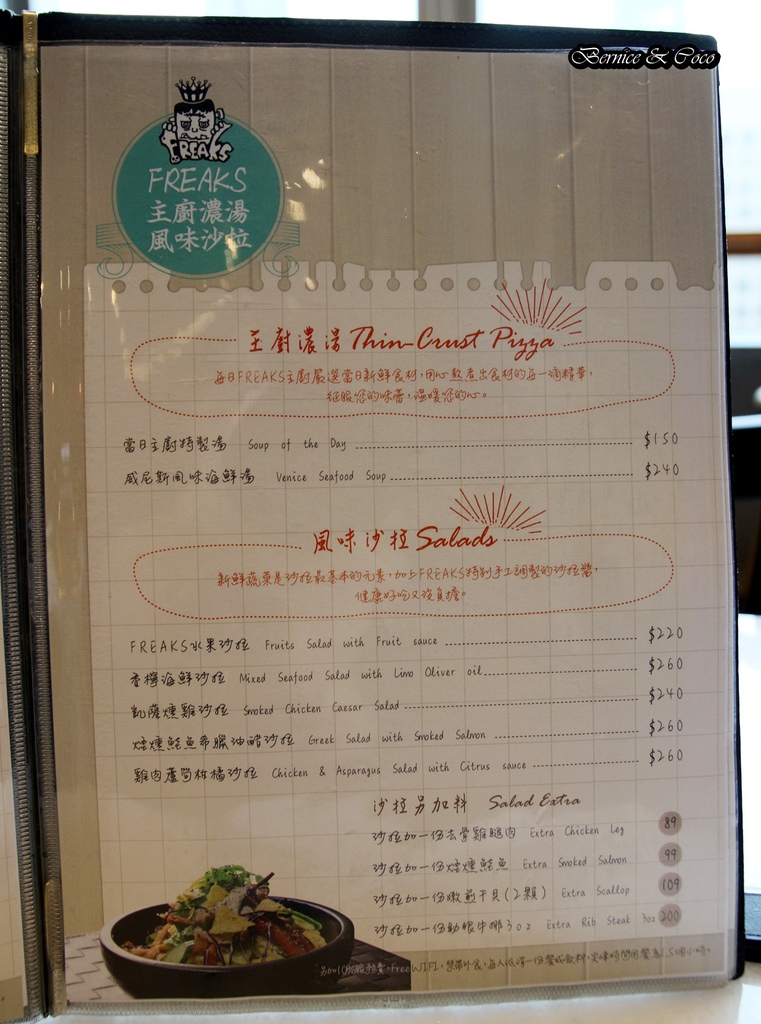 Bernice & Coco
FREAKS
FREAKS
主廚濃湯
風味沙拉
主廚濃湯 Thin-Crust Pizza
每日FREAKS主廚嚴選當日新鮮食材,用心熬煮出食材的每一滴精華,
征服您的味蕾,溫暖您的心。
當日主廚特製湯 Soup of the Day $150
威尼斯風味海鮮湯 Venice Seafood Soup $240
風味沙拉 Salads
新鮮蔬菜是沙拉最基本的元素,加上FREAKS特別手工調製的沙拉醬,
健康好吃又沒負擔。
FREAKS水果沙拉 Fruits Salad with Fruit sauce $220
香檸海鮮沙拉 Mixed Seafood Salad with Limo Oliver oil $260
凱薩燻雞沙拉 Smoked Chicken Caesar Salad $240
焙燻鮭魚希臘油醋沙拉 Greek Salad with Smoked Salmon $260
雞肉蘆筍柑橘沙拉 Chicken & Asparagus Salad with Citrus sauce $260
沙拉另加料 Salad Extra
沙拉加一份去骨雞腿肉 Extra Chicken Leg 89
沙拉加一份焙燻鮭魚 Extra Smoked Salmon 99
沙拉加一份嫩煎干貝(2顆) Extra Scallop 109
沙拉加一份肋眼牛排3oz Extra Rib Steak 3oz 200
另加10%服務費,Free WIFI,禁帶外食,每人低消一份餐或飲料,尖峰時間用餐為1.5個小時。